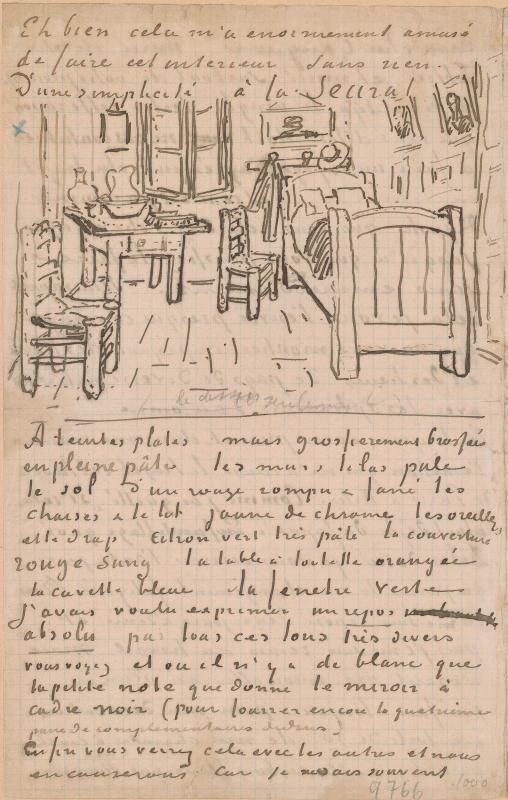 Eh bien cela m'a enormement amusé
de faire cet interieur sans rien.
D'une simplicité à la Seurat
le dessin seulement
A teintes plates mais grossierement brossées
en pleine pâte les murs lilas pale
le sol d'un rouge rompu & fané les
chaises & le lit jaune de chrome les oreillers
et le drap citron vert très pâle la couverture
rouge sang la table à toilette orangée
la cuvette bleue la fenetre verte
J'avais voulu exprimer un repos
absolu par tous ces tons très divers
vous voyez et où il n'y a de blanc que
la petite note que donne le miroir à
cadre noir (pour fourrer encore la quatrième
paire de complementaires dedans)
Enfin vous verrez cela avec les autres et nous
en causerons car je ne sais souvent
9766
1000